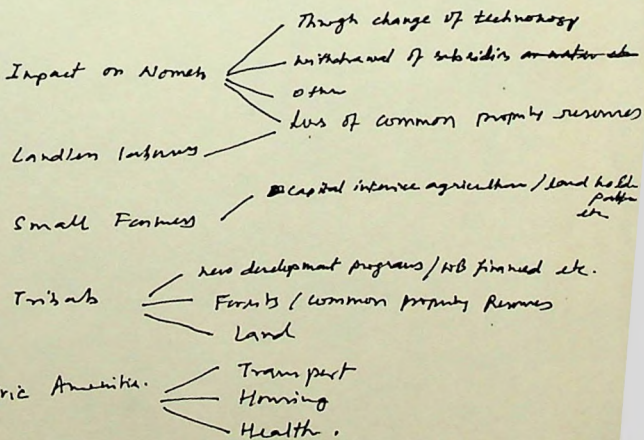 Through change of technonogy
Impact on Nomets
withdrawal of subsidies or water etc
other
Loss of common property resources
Landless labourers
Small Farmers
capital intensive agriculture / land hold
etc
Tribals
new development programs / WB financed etc.
Forests / common property Resources
Land
ric Amenities.
Transport
Housing
Health.